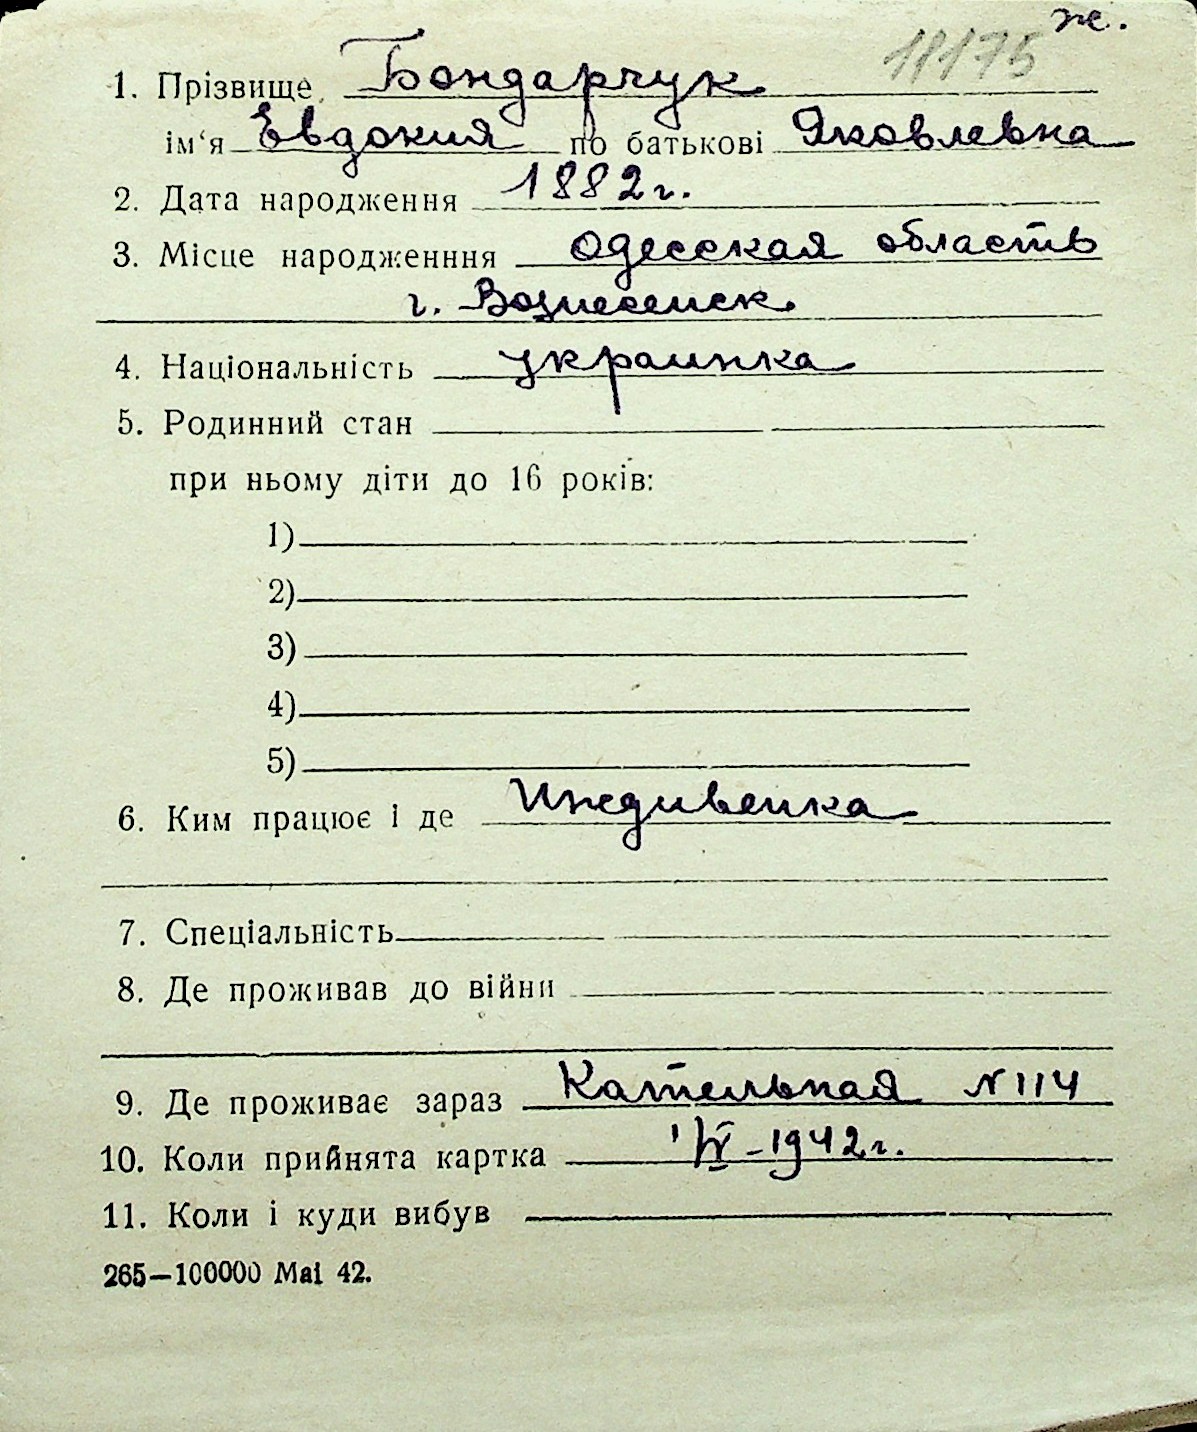 ж.
18175
1. Прізвище Бондарчук
ім‘я Евдокия по батькові Яковлевна
2. Дата народження 1882 г.
3. Місце народженння Одесская область
г. Вознесенск
4. Національність украинка
5. Родинний стан
при ньому діти до 16 років:
1)
2)
3)
4)
5)
6. Ким працює і де Иждивенка
7. Спеціальність
8. Де проживав до війни
9. Де проживає зараз Котельная N 114
10. Коли прийнята картка -1942 г.
11. Коли і куди вибув
265—100000 Mai 42.